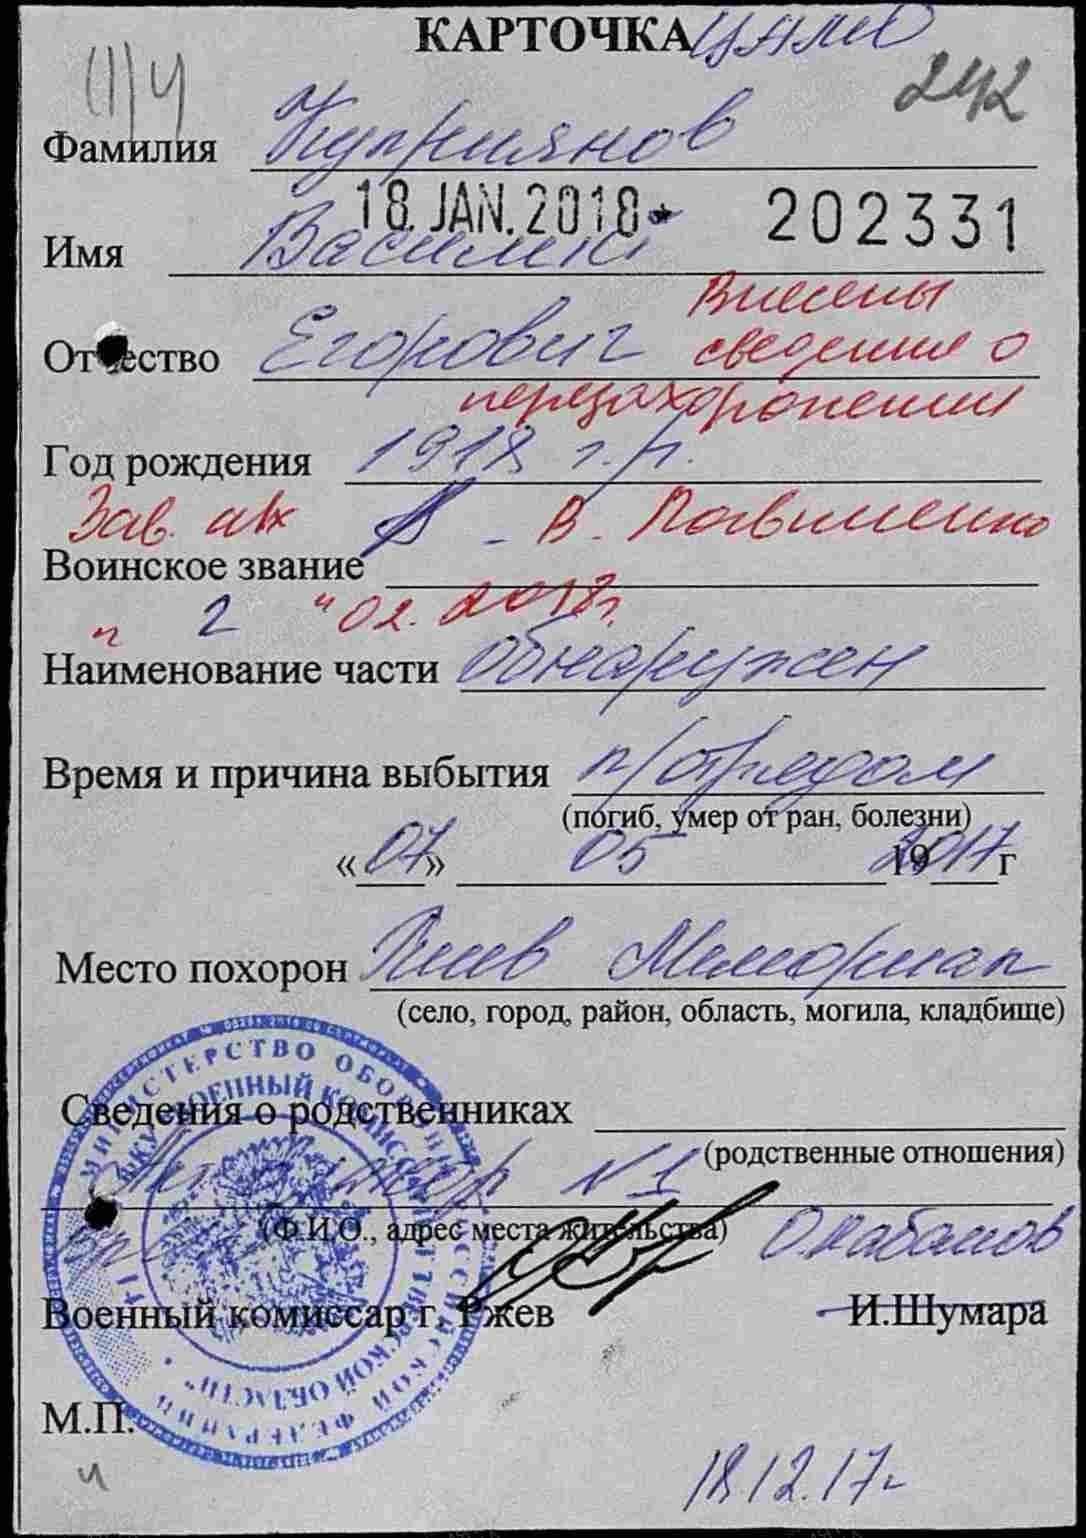 КАРТОЧКА ЦАМО
242
Фамилия Куприянов
18. JAN. 2018 202331
Имя Василий
Внесены
Отчество Егорович сведения о
перезахоронении
Год рождения 1918 г.р.
Зав. В. Павлиненко
Воинское звание
" 2 " 02. 2018г.
Наименование части Обнаружен
Время и причина выбытия п/отрядом
(погиб, умер от ран, болезни)
«07» 05 192017г
Место похорон Ржев Мемориал
(село, город, район, область, могила, кладбище)
Сведения о родственниках
(родственные отношения)
№1
(Ф.И.О., адрес места жительства)
О.Кабанов
Военный комиссар г. Ржев И.Шумара
М.П.
МИНИСТЕРСТВО ОБОРОНЫ РОССИЙСКОЙ ФЕДЕРАЦИИ
ТВЕРСКОЙ ОБЛАСТИ
18.12.17г